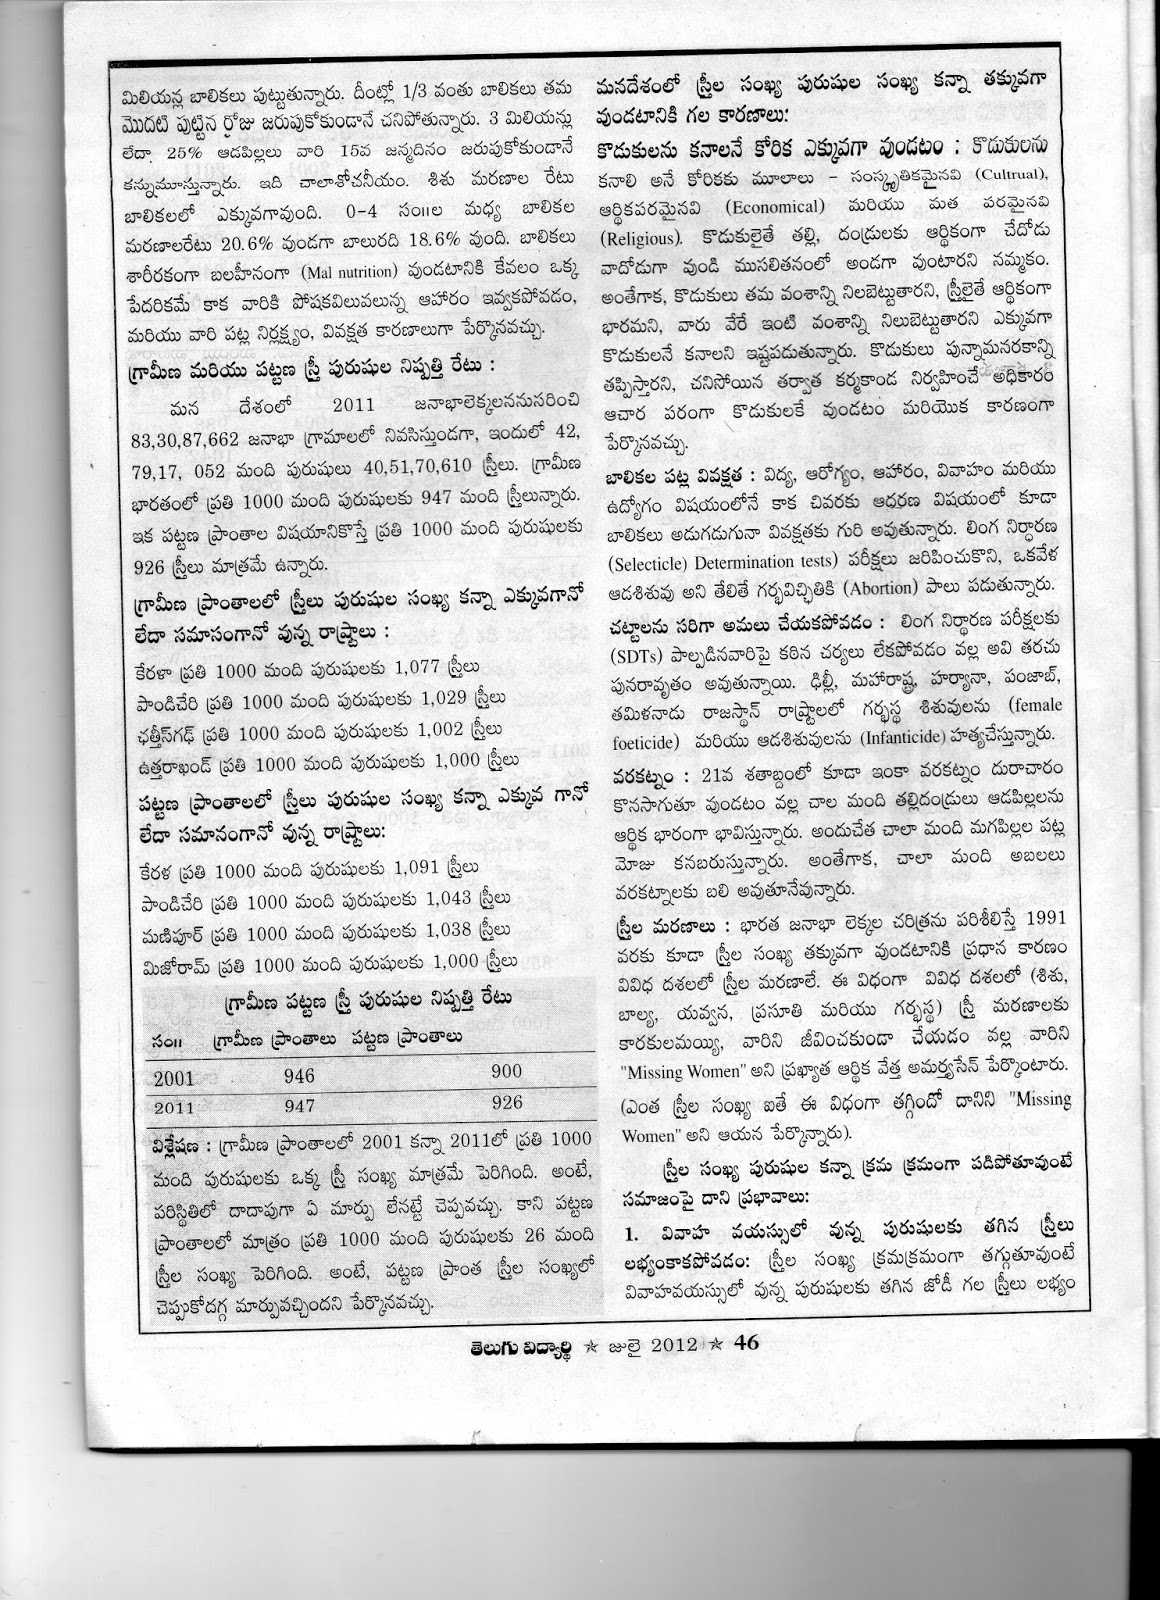 మిలియన్ల బాలికలు పుట్టుతున్నారు. దీంట్లో 1/3 వంతు బాలికలు తమ
మొదటి పుట్టిన రోజు జరుపుకోకుండానే చనిపోతున్నారు. 3 మిలియన్లు
లేదా 25% ఆడపిల్లలు వారి 15వ జన్మదినం జరుపుకోకుండానే
కన్నుమూస్తున్నారు. ఇది చాలాశోచనీయం. శిశు మరణాల రేటు
బాలికలలో ఎక్కువగావుంది. 0-4 సం॥ల మధ్య బాలికల
మరణాలరేటు 20.6% వుండగా బాలురది 18.6% వుంది. బాలికలు
శారీరకంగా బలహీనంగా (Mal nutrition) వుండటానికి కేవలం ఒక్క
పేదరికమే కాక వారికి పోషకవిలువలున్న ఆహారం ఇవ్వకపోవడం,
మరియు వారి పట్ల నిర్లక్ష్యం, వివక్షత కారణాలుగా పేర్కొనవచ్చు.
గ్రామీణ మరియు పట్టణ స్త్రీ పురుషుల నిష్పత్తి రేటు :
మన దేశంలో 2011 జనాభాలెక్కలననుసరించి
83,30,87,662 జనాభా గ్రామాలలో నివసిస్తుండగా, ఇందులో 42,
79,17, 052 మంది పురుషులు 40,51,70,610 స్త్రీలు. గ్రామీణ
భారతంలో ప్రతి 1000 మంది పురుషులకు 947 మంది స్త్రీలున్నారు.
ఇక పట్టణ ప్రాంతాల విషయానికొస్తే ప్రతి 1000 మంది పురుషులకు
926 స్త్రీలు మాత్రమే ఉన్నారు.
గ్రామీణ ప్రాంతాలలో స్త్రీలు పురుషుల సంఖ్య కన్నా ఎక్కువగానో
లేదా సమాసంగానో వున్న రాష్ట్రాలు :
కేరళా ప్రతి 1000 మంది పురుషులకు 1,077 స్త్రీలు
పాండిచేరి ప్రతి 1000 మంది పురుషులకు 1,029 స్త్రీలు
ఛత్తీస్‌గఢ్ ప్రతి 1000 మంది పురుషులకు 1,002 స్త్రీలు
ఉత్తరాఖండ్ ప్రతి 1000 మంది పురుషులకు 1,000 స్త్రీలు
పట్టణ ప్రాంతాలలో స్త్రీలు పురుషుల సంఖ్య కన్నా ఎక్కువ గానో
లేదా సమానంగానో వున్న రాష్ట్రాలు:
కేరళ ప్రతి 1000 మంది పురుషులకు 1,091 స్త్రీలు
పాండిచేరి ప్రతి 1000 మంది పురుషులకు 1,043 స్త్రీలు
మణిపూర్ ప్రతి 1000 మంది పురుషులకు 1,038 స్త్రీలు
మిజోరామ్ ప్రతి 1000 మంది పురుషులకు 1,000 స్త్రీలు
గ్రామీణ పట్టణ స్త్రీ పురుషుల నిష్పత్తి రేటు
సం॥ గ్రామీణ ప్రాంతాలు పట్టణ ప్రాంతాలు
2001 946 900
2011 947 926
విశ్లేషణ : గ్రామీణ ప్రాంతాలలో 2001 కన్నా 2011లో ప్రతి 1000
మంది పురుషులకు ఒక్క స్త్రీ సంఖ్య మాత్రమే పెరిగింది. అంటే,
పరిస్థితిలో దాదాపుగా ఏ మార్పు లేనట్టే చెప్పవచ్చు. కాని పట్టణ
ప్రాంతాలలో మాత్రం ప్రతి 1000 మంది పురుషులకు 26 మంది
స్త్రీల సంఖ్య పెరిగింది. అంటే, పట్టణ ప్రాంత స్త్రీల సంఖ్యలో
చెప్పుకోదగ్గ మార్పువచ్చిందని పేర్కొనవచ్చు.
మనదేశంలో స్త్రీల సంఖ్య పురుషుల సంఖ్య కన్నా తక్కువగా
వుండటానికి గల కారణాలు:
కొడుకులను కనాలనే కోరిక ఎక్కువగా వుండటం : కొడుకులను
కనాలి అనే కోరికకు మూలాలు - సంస్కృతికమైనవి (Cultrual),
ఆర్థికపరమైనవి (Economical) మరియు మత పరమైనవి
(Religious). కొడుకులైతే తల్లి, దండ్రులకు ఆర్థికంగా చేదోడు
వాదోడుగా వుండి ముసలితనంలో అండగా వుంటారని నమ్మకం.
అంతేగాక, కొడుకులు తమ వంశాన్ని నిలబెట్టుతారని, స్త్రీలైతే ఆర్థికంగా
భారమని, వారు వేరే ఇంటి వంశాన్ని నిలుబెట్టుతారని ఎక్కువగా
కొడుకులనే కనాలని ఇష్టపడుతున్నారు. కొడుకులు పున్నామనరకాన్ని
తప్పిస్తారని, చనిసోయిన తర్వాత కర్మకాండ నిర్వహించే అధికారం
ఆచార పరంగా కొడుకులకే వుండటం మరియొక కారణంగా
పేర్కొనవచ్చు.
బాలికల పట్ల వివక్షత : విద్య, ఆరోగ్యం, ఆహారం, వివాహం మరియు
ఉద్యోగం విషయంలోనే కాక చివరకు ఆధరణ విషయంలో కూడా
బాలికలు అడుగడుగునా వివక్షతకు గురి అవుతున్నారు. లింగ నిర్ధారణ
(Selecticle) Determination tests) పరీక్షలు జరిపించుకొని, ఒకవేళ
ఆడశిశువు అని తేలితే గర్భవిచ్ఛితికి (Abortion) పాలు పడుతున్నారు.
చట్టాలను సరిగా అమలు చేయకపోవడం : లింగ నిర్ధారణ పరీక్షలకు
(SDTs) పాల్పడినవారిపై కఠిన చర్యలు లేకపోవడం వల్ల అవి తరచు
పునరావృతం అవుతున్నాయి. ఢిల్లీ, మహారాష్ట్ర, హర్యానా, పంజాబ్,
తమిళనాడు రాజస్థాన్ రాష్ట్రాలలో గర్భస్థ శిశువులను (female
foeticide) మరియు ఆడశిశువులను (Infanticide) హత్యచేస్తున్నారు.
వరకట్నం : 21వ శతాబ్దంలో కూడా ఇంకా వరకట్నం దురాచారం
కొనసాగుతూ వుండటం వల్ల చాల మంది తల్లిదండ్రులు ఆడపిల్లలను
ఆర్థిక భారంగా భావిస్తున్నారు. అందుచేత చాలా మంది మగపిల్లల పట్ల
మోజు కనబరుస్తున్నారు. అంతేగాక, చాలా మంది అబలలు
వరకట్నాలకు బలి అవుతూనేవున్నారు.
స్త్రీల మరణాలు : భారత జనాభా లెక్కల చరిత్రను పరిశీలిస్తే 1991
వరకు కూడా స్త్రీల సంఖ్య తక్కువగా వుండటానికి ప్రధాన కారణం
వివిధ దశలలో స్త్రీల మరణాలే. ఈ విధంగా వివిధ దశలలో (శిశు,
బాల్య, యవ్వన, ప్రసూతి మరియు గర్భస్థ) స్త్రీ మరణాలకు
కారకులమయ్యి, వారిని జీవించకుండా చేయడం వల్ల వారిని
"Missing Women" అని ప్రఖ్యాత ఆర్థిక వేత్త అమర్త్యసేన్ పేర్కొంటారు.
(ఎంత స్త్రీల సంఖ్య ఐతే ఈ విధంగా తగ్గిందో దానిని "Missing
Women" అని ఆయన పేర్కొన్నారు).
స్త్రీల సంఖ్య పురుషుల కన్నా క్రమ క్రమంగా పడిపోతూవుంటే
సమాజంపై దాని ప్రభావాలు:
1. వివాహ వయస్సులో వున్న పురుషులకు తగిన స్త్రీలు
లభ్యంకాకపోవడం: స్త్రీల సంఖ్య క్రమక్రమంగా తగ్గుతూవుంటే
వివాహవయస్సులో వున్న పురుషులకు తగిన జోడీ గల స్త్రీలు లభ్యం
తెలుగు విద్యార్థి ☆ జులై 2012 ☆ 46